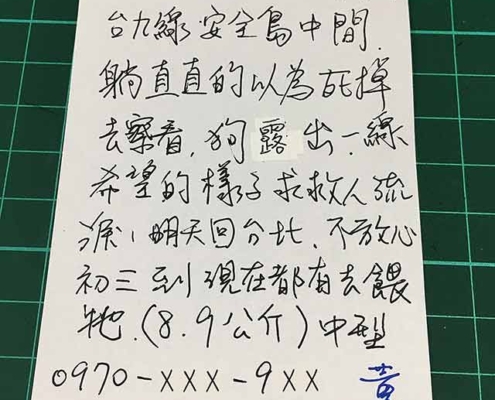 台九線安全島中間.
躺直直的以為死掉
去察看,狗露出一線
希望的樣子求救人流
淚,明天回台北,不放心
初三到現在都有去餵
牠.(8.9公斤)中型
0970-XXX-9XX 黃